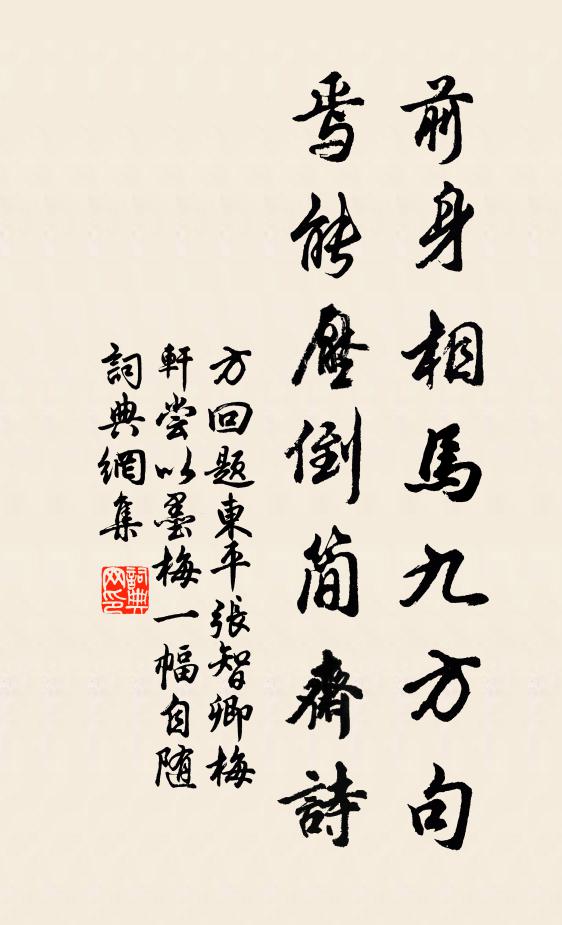 前身相馬九方句
焉能壓倒簡齋詩
方回題東平張智卿梅
軒嘗以墨梅一幅自随
詞典網集
詞典网印